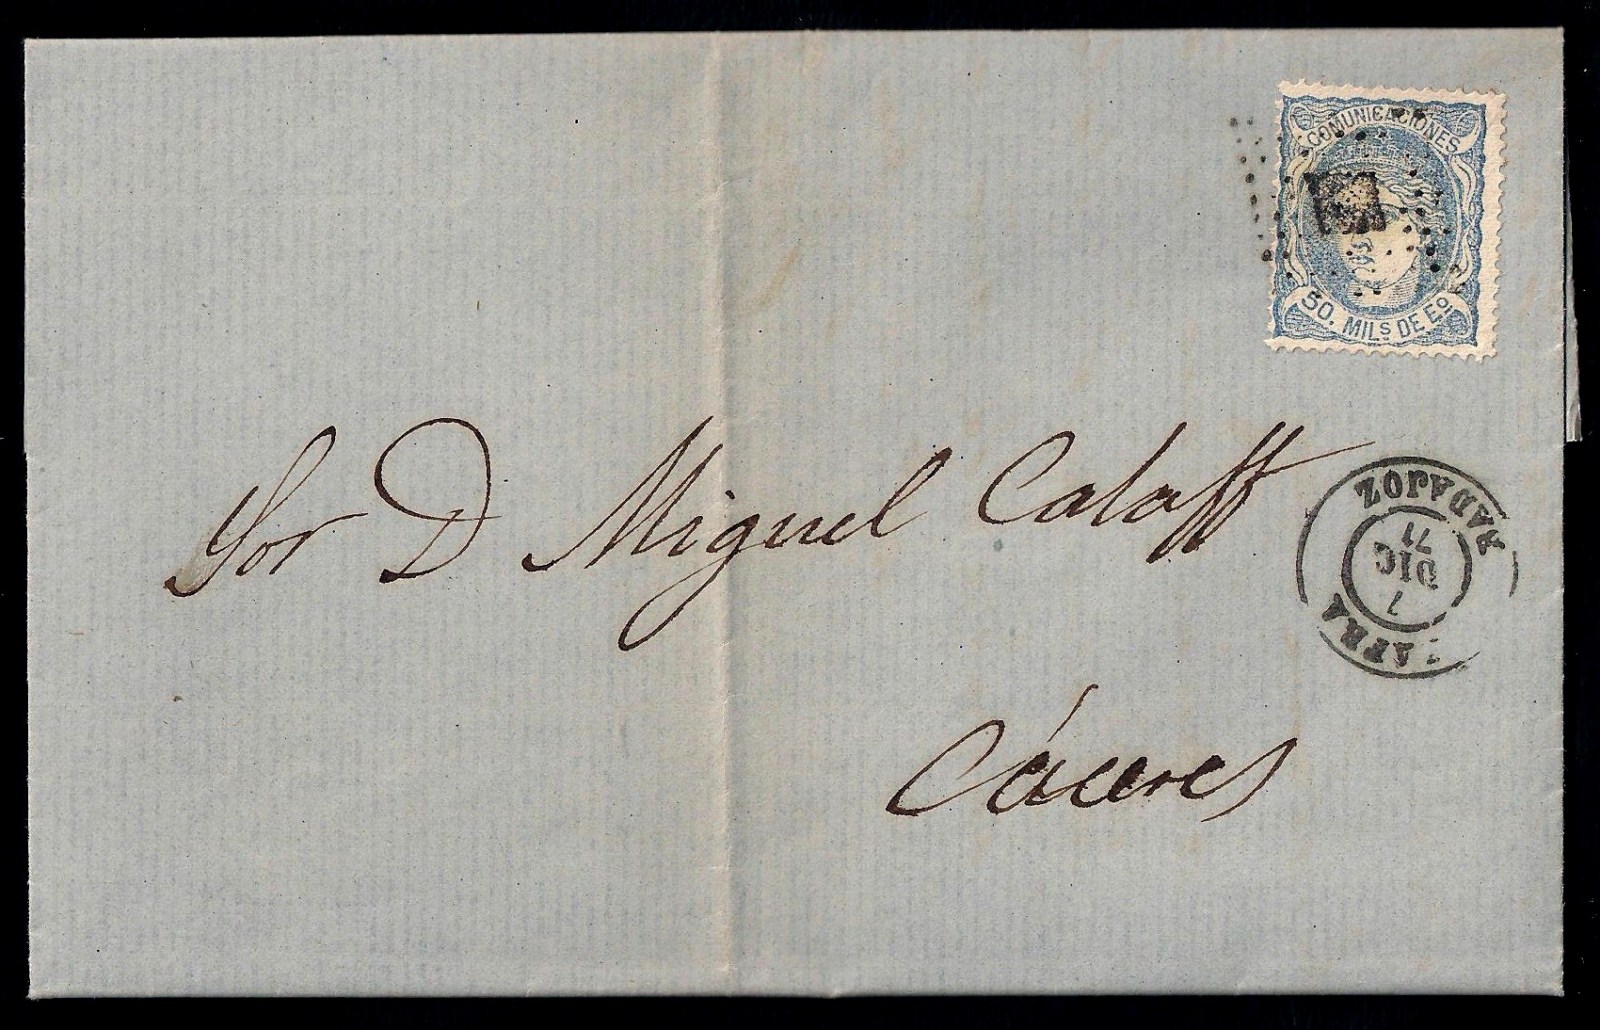 COMUNICACIONES
50. MILS DE EO
Sor D Miguel Calaff
BADAJOZ
7
DIC
71
ZAFRA
Cáceres